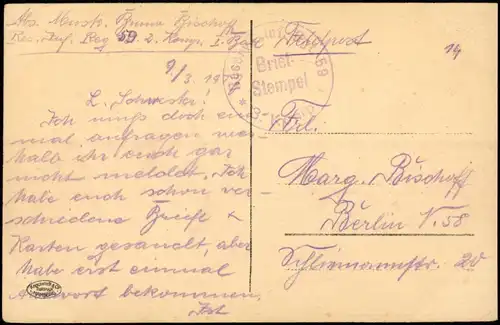 Abs. Musk. Bruno Bischoff
Res. Inf. Reg 59. 2. Komp. I. Batl.
Feldpost
14
9/3. 19
Brief-
Stempel
59
L. Schwester!
Ich muß doch ein
mal anfragen wes
halb ihr euch gar
nicht meldet. Ich
habe euch schon ver
schiedene Briefe &
Karten gesandt, aber
habe erst einmal
Antwort bekommen.
Ist
Frl.
Marg. Bischoff
Berlin N. 58
Schliemannstr. 20